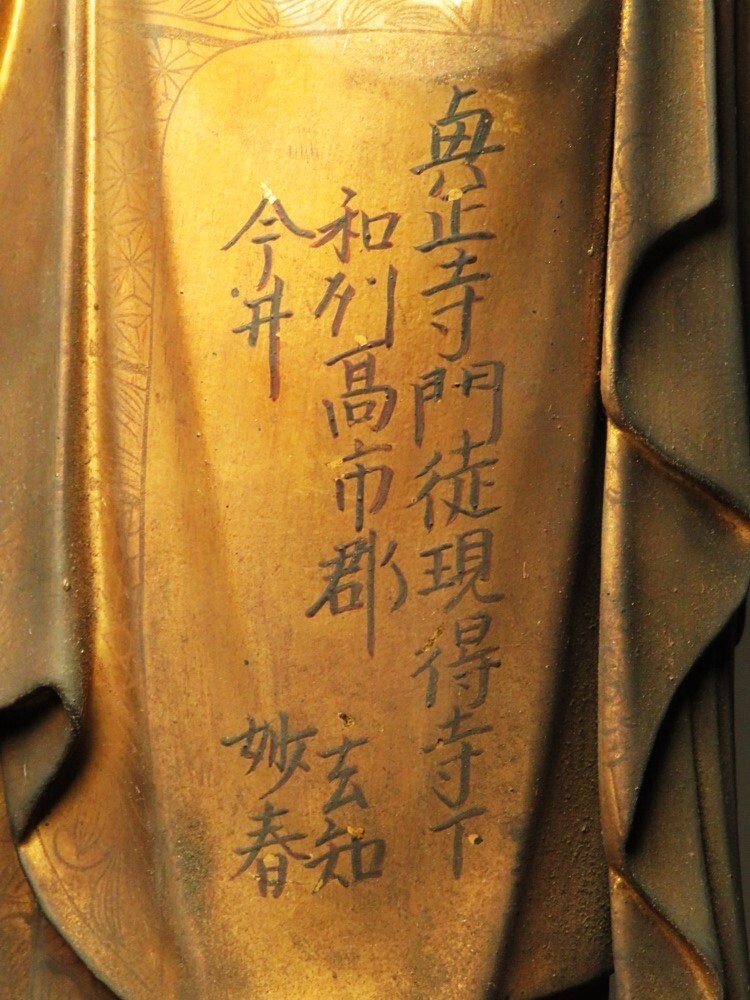 眞正寺門徒現得寺下
和列高市郡
今井
玄知
妙春